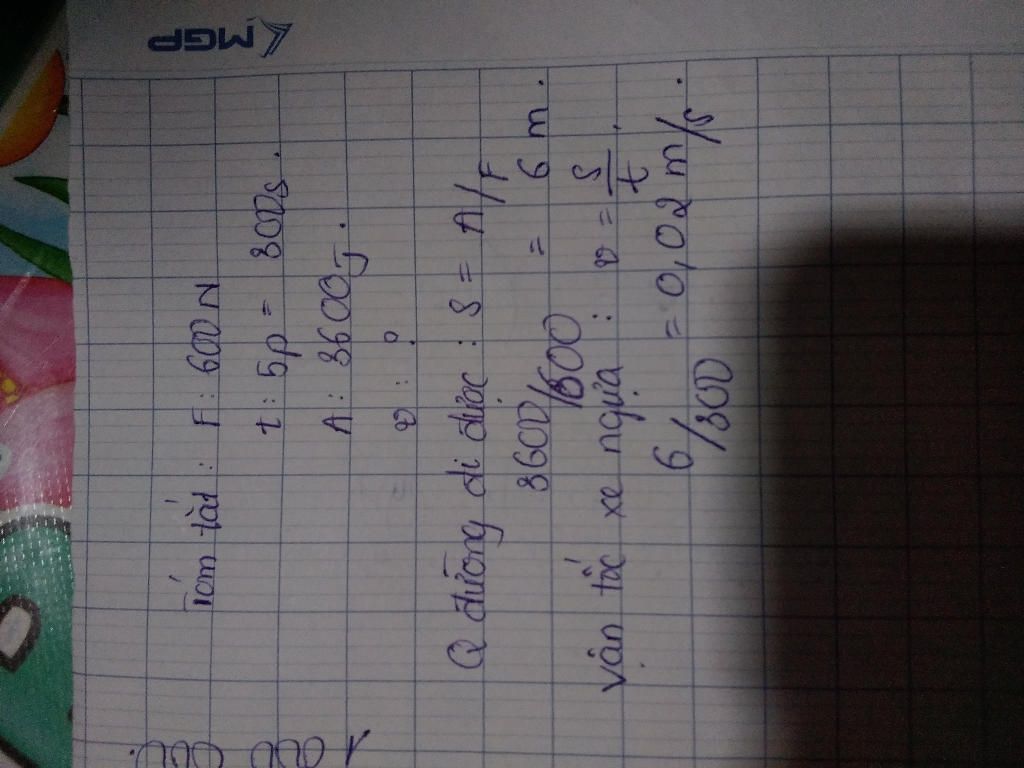 MGP
Tóm tắt: F: 600 N
t: 5p = 300s.
A: 3600 J.
v: ?
Q đường đi được: S = A/F
3600/600 = 6 m.
Vận tốc xe ngựa: v = s/t.
6/300 = 0,02 m/s.